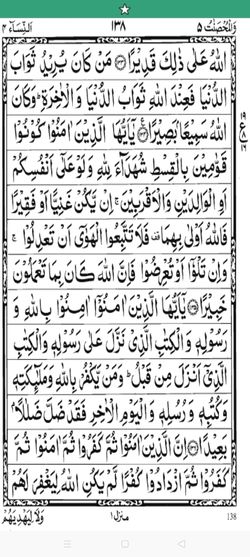 وَالْمُحْصَنٰتُ ٥
١٣٨
اَلنِّسَآء ٤
اللّٰهُ عَلٰى ذٰلِكَ قَدِيْرًا ﴿١٣٣﴾ مَنْ كَانَ يُرِيْدُ ثَوَابَ
الدُّنْيَا فَعِنْدَ اللّٰهِ ثَوَابُ الدُّنْيَا وَالْاٰخِرَةِ ؕ وَكَانَ
اللّٰهُ سَمِيْعًۢا بَصِيْرًا ﴿١٣٤﴾ يٰۤاَيُّهَا الَّذِيْنَ اٰمَنُوْا كُوْنُوْا
قَوّٰمِيْنَ بِالْقِسْطِ شُهَدَآءَ لِلّٰهِ وَلَوْ عَلٰۤى اَنْفُسِكُمْ
اَوِ الْوَالِدَيْنِ وَالْاَقْرَبِيْنَ ۚ اِنْ يَّكُنْ غَنِيًّا اَوْ فَقِيْرًا
فَاللّٰهُ اَوْلٰى بِهِمَا ۫ فَلَا تَتَّبِعُوا الْهَوٰۤى اَنْ تَعْدِلُوْا ۚ
وَاِنْ تَلْوٗۤا اَوْ تُعْرِضُوْا فَاِنَّ اللّٰهَ كَانَ بِمَا تَعْمَلُوْنَ
خَبِيْرًا ﴿١٣٥﴾ يٰۤاَيُّهَا الَّذِيْنَ اٰمَنُوْۤا اٰمِنُوْا بِاللّٰهِ وَ
رَسُوْلِهٖ وَ الْكِتٰبِ الَّذِيْ نَزَّلَ عَلٰى رَسُوْلِهٖ وَالْكِتٰبِ
الَّذِيْۤ اَنْزَلَ مِنْ قَبْلُ ؕ وَمَنْ يَّكْفُرْ بِاللّٰهِ وَمَلٰٓئِكَتِهٖ
وَكُتُبِهٖ وَ رُسُلِهٖ وَ الْيَوْمِ الْاٰخِرِ فَقَدْ ضَلَّ ضَلٰلًاۢ
بَعِيْدًا ﴿١٣٦﴾ اِنَّ الَّذِيْنَ اٰمَنُوْا ثُمَّ كَفَرُوْا ثُمَّ اٰمَنُوْا ثُمَّ
كَفَرُوْا ثُمَّ ازْدَادُوْا كُفْرًا لَّمْ يَكُنِ اللّٰهُ لِيَغْفِرَ لَهُمْ
وَلَا لِيَهْدِيَهُمْ
منزل ١
138